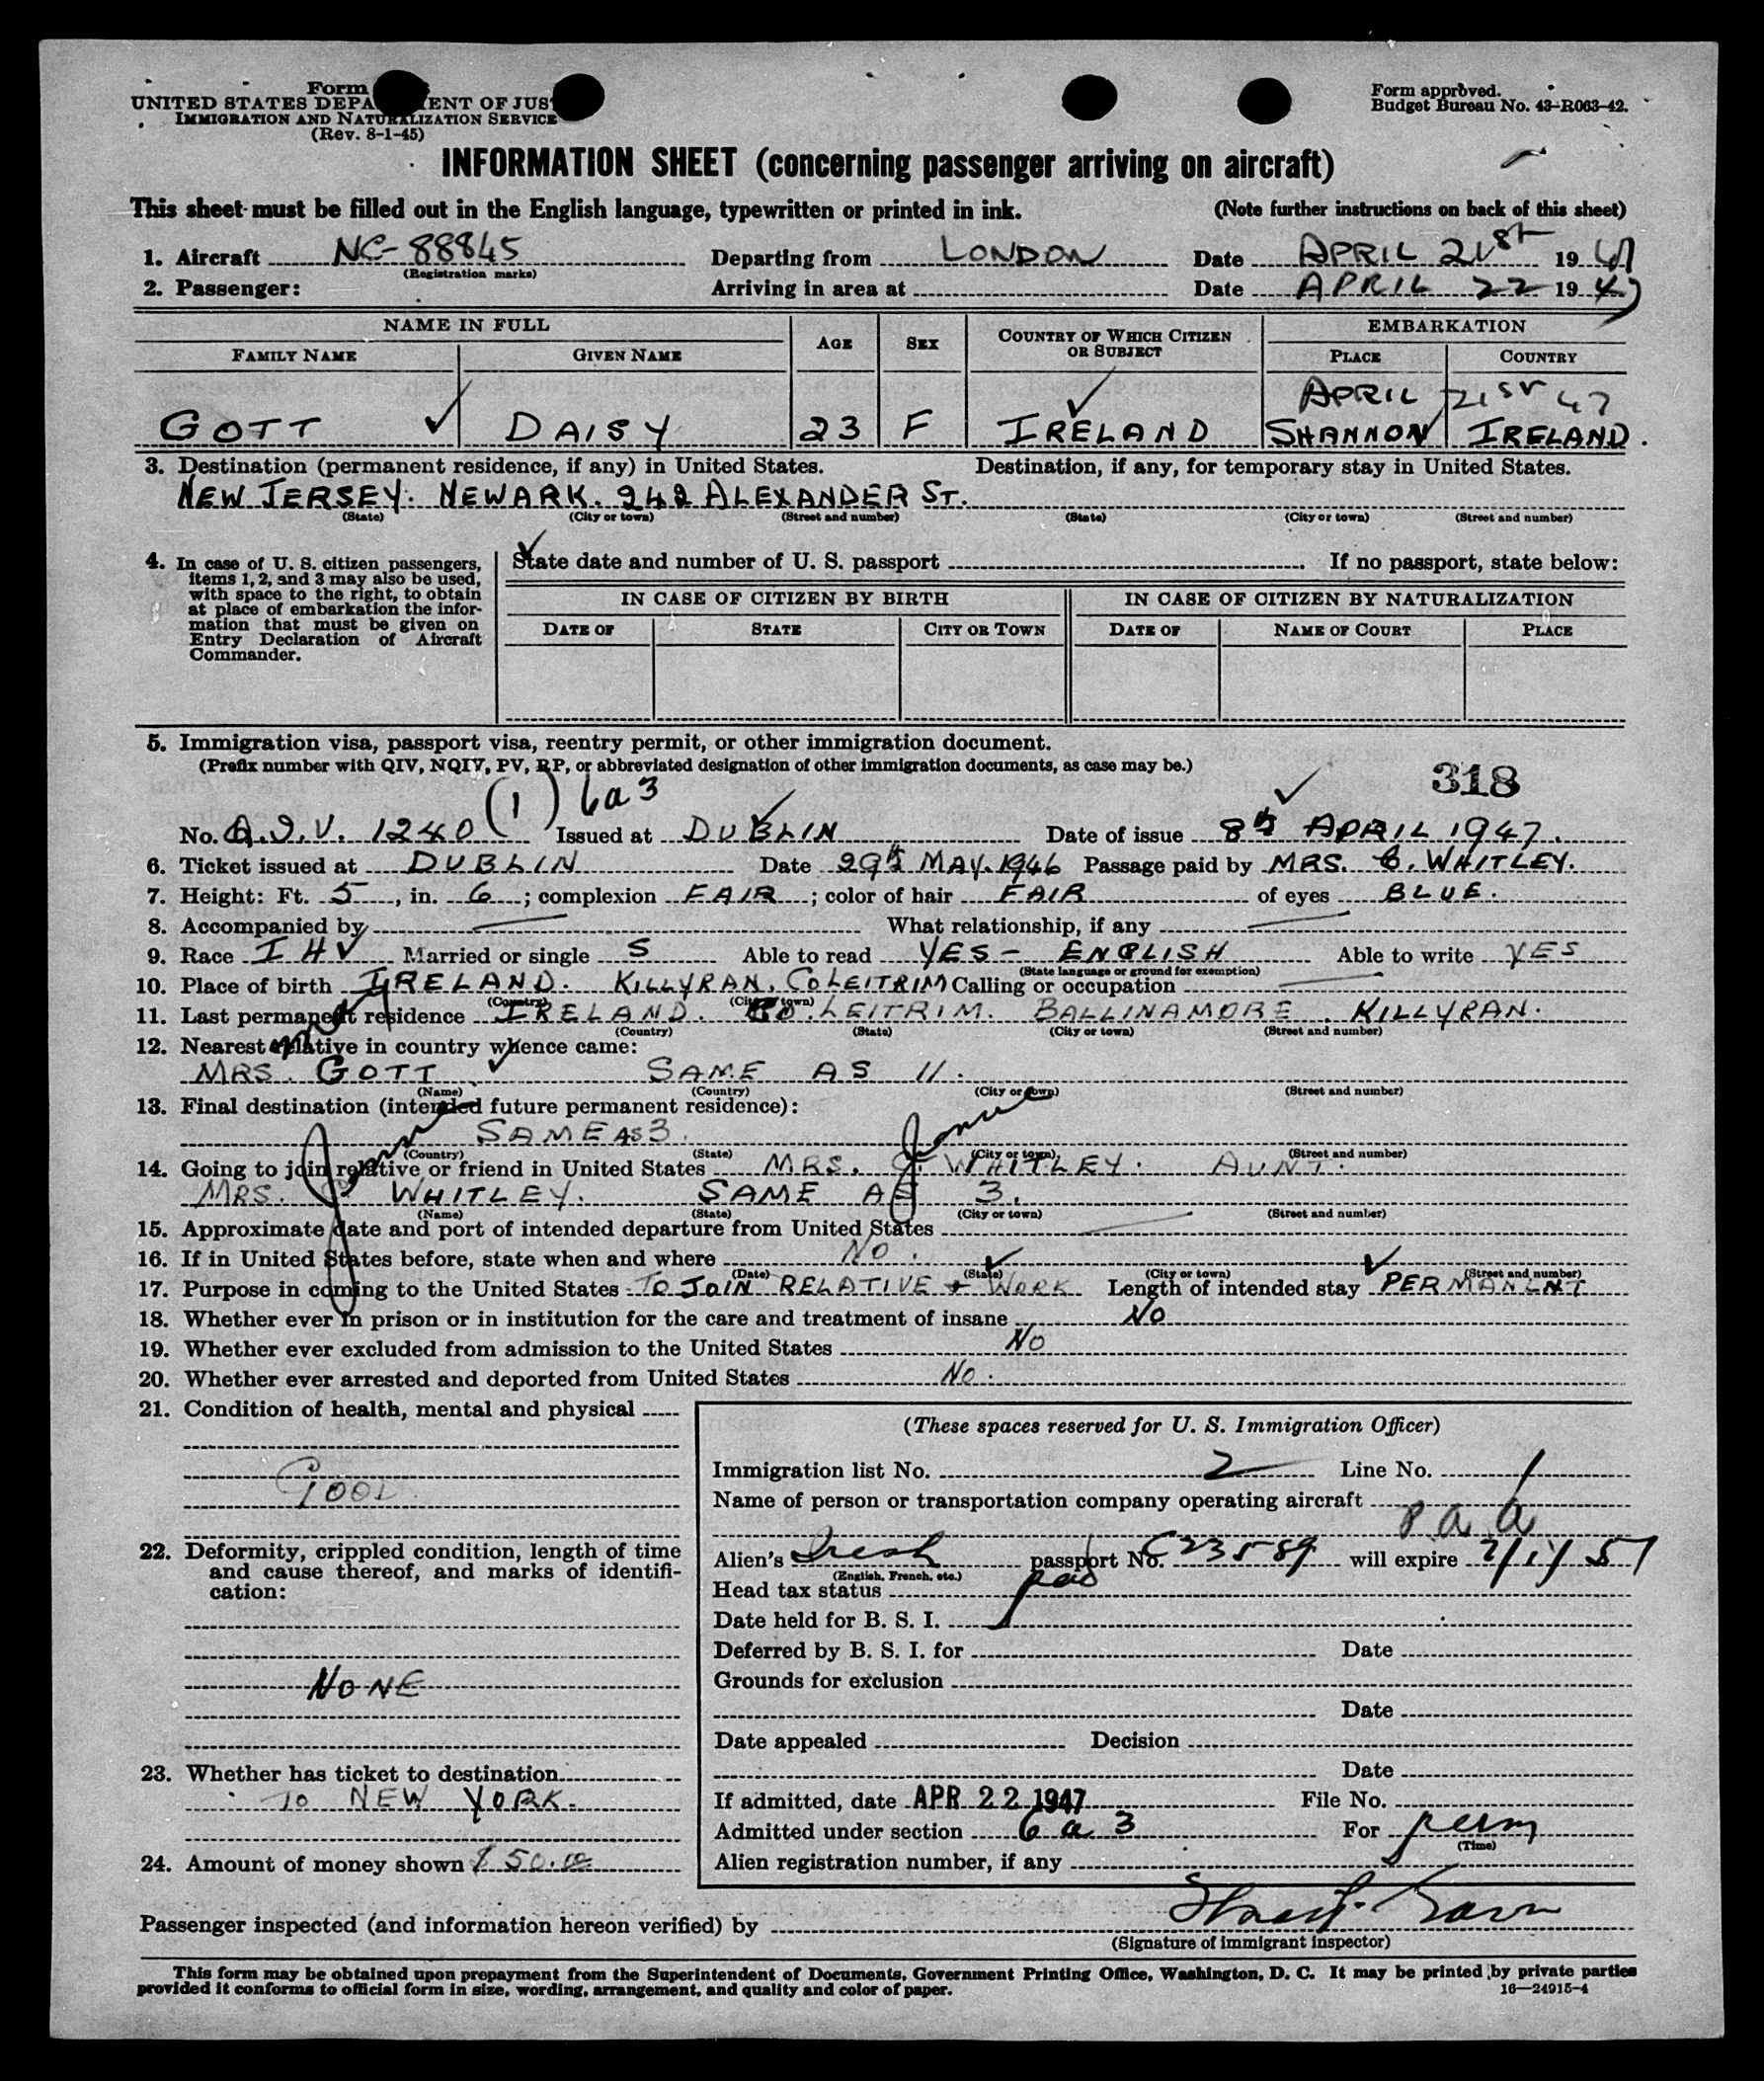 Form
UNITED STATES DEPA ENT OF JUS
IMMIGRATION AND NATURALIZATION SERVICE
(Rev. 8-1-45)
Form approved.
Budget Bureau No. 43-R063-42.
INFORMATION SHEET (concerning passenger arriving on aircraft)
This sheet must be filled out in the English language, typewritten or printed in ink. (Note further instructions on back of this sheet)
1. Aircraft NC-88845 Departing from LONDON Date APRIL 21st 1947
(Registration marks)
2. Passenger: Arriving in area at Date APRIL 22 1947
NAME IN FULL AGE SEX COUNTRY OF WHICH CITIZEN OR SUBJECT EMBARKATION
FAMILY NAME GIVEN NAME PLACE COUNTRY
APRIL 21ST 47
GOTT DAISY 23 F IRELAND SHANNON IRELAND.
3. Destination (permanent residence, if any) in United States. Destination, if any, for temporary stay in United States.
NEW JERSEY. NEWARK. 242 ALEXANDER ST.
(State) (City or town) (Street and number) (State) (City or town) (Street and number)
4. In case of U. S. citizen passengers, items 1, 2, and 3 may also be used, with space to the right, to obtain at place of embarkation the information that must be given on Entry Declaration of Aircraft Commander.
State date and number of U. S. passport If no passport, state below:
IN CASE OF CITIZEN BY BIRTH IN CASE OF CITIZEN BY NATURALIZATION
DATE OF STATE CITY OR TOWN DATE OF NAME OF COURT PLACE
5. Immigration visa, passport visa, reentry permit, or other immigration document.
(Prefix number with QIV, NQIV, PV, RP, or abbreviated designation of other immigration documents, as case may be.)
318
(1) 6a3
No. Q.I.V. 1240 Issued at DUBLIN Date of issue 8th APRIL 1947.
6. Ticket issued at DUBLIN Date 29th MAY. 1946 Passage paid by MRS. C. WHITLEY.
7. Height: Ft. 5, in. 6; complexion FAIR; color of hair FAIR of eyes BLUE.
8. Accompanied by What relationship, if any
9. Race I H Married or single S Able to read YES - ENGLISH Able to write YES
(State language or ground for exemption)
10. Place of birth IRELAND. KILLYRAN, CO LEITRIM Calling or occupation
(Country) (City or town)
11. Last permanent residence IRELAND. CO. LEITRIM. BALLINAMORE. KILLYRAN.
(Country) (State) (City or town) (Street and number)
12. Nearest relative in country whence came:
MRS. GOTT SAME AS 11.
(Name) (Country) (City or town) (Street and number)
13. Final destination (intended future permanent residence):
SAME AS 3.
(Country) (State) (City or town) (Street and number)
14. Going to join relative or friend in United States MRS. WHITLEY. AUNT.
MRS. WHITLEY. SAME AS 3.
(Name) (State) (City or town) (Street and number)
15. Approximate date and port of intended departure from United States
16. If in United States before, state when and where NO.
(Date) (State) (City or town) (Street and number)
17. Purpose in coming to the United States TO JOIN RELATIVE + WORK Length of intended stay PERMANENT
18. Whether ever in prison or in institution for the care and treatment of insane NO
19. Whether ever excluded from admission to the United States NO
20. Whether ever arrested and deported from United States NO.
21. Condition of health, mental and physical
GOOD
22. Deformity, crippled condition, length of time and cause thereof, and marks of identification:
NONE
23. Whether has ticket to destination
TO NEW YORK.
24. Amount of money shown $50.00
(These spaces reserved for U. S. Immigration Officer)
Immigration list No. 2 Line No. 1
Name of person or transportation company operating aircraft
P a a
Alien's Irish passport No. C23589 will expire
(English, French, etc.)
Head tax status pad
Date held for B. S. I.
Deferred by B. S. I. for Date
Grounds for exclusion
Date
Date appealed Decision
Date
If admitted, date APR 22 1947 File No.
Admitted under section 6 a 3 For perm
(Time)
Alien registration number, if any
Passenger inspected (and information hereon verified) by
(Signature of immigrant inspector)
This form may be obtained upon prepayment from the Superintendent of Documents, Government Printing Office, Washington, D. C. It may be printed by private parties
provided it conforms to official form in size, wording, arrangement, and quality and color of paper. 16—24915-4